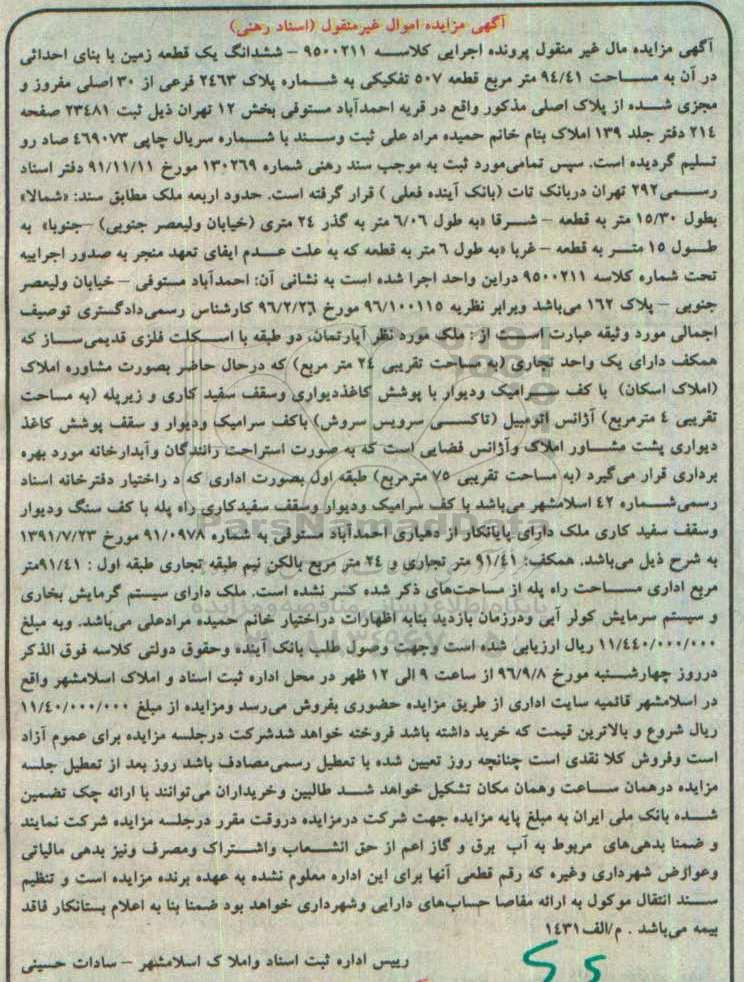 آگهی مزایده اموال غیرمنقول (اسناد رهنی)
آگهی مزایده مال غیر منقول پرونده اجرایی کلاسه ۹۵۰۰۲۱۱ - ششدانگ یک قطعه زمین با بنای احداثی
در آن به مساحت ۹۴/۴۱ متر مربع قطعه ۵۰۷ تفکیکی به شماره پلاک ۲۴۶۳ فرعی از ۳۰ اصلی مفروز و
مجزی شده از پلاک اصلی مذکور واقع در قریه احمدآباد مستوفی بخش ۱۲ تهران ذیل ثبت ۲۳۴۸۱ صفحه
۲۱۴ دفتر جلد ۱۳۹ املاک بنام خانم حمیده مراد علی ثبت وسند با شماره سریال چاپی ۴۶۹۰۷۳ صاد رو
تسلیم گردیده است. سپس تمامی‌مورد ثبت به موجب سند رهنی شماره ۱۳۰۲۶۹ مورخ ۹۱/۱۱/۱۱ دفتر اسناد
رسمی۲۹۲ تهران دربانک تات (بانک آینده فعلی ) قرار گرفته است. حدود اربعه ملک مطابق سند: «شمالا»
بطول ۱۵/۳۰ متر به قطعه - شرقا «به طول ۶/۰۶ متر به گذر ۲۴ متری (خیابان ولیعصر جنوبی) -جنوبا» به
طول ۱۵ متر به قطعه - غربا «به طول ۶ متر به قطعه که به علت عدم ایفای تعهد منجر به صدور اجراییه
تحت شماره کلاسه ۹۵۰۰۲۱۱ دراین واحد اجرا شده است به نشانی آن: احمدآباد مستوفی - خیابان ولیعصر
جنوبی - پلاک ۱۶۲ می‌باشد وبرابر نظریه ۹۶/۱۰۰۱۱۵ مورخ ۹۶/۲/۲۶ کارشناس رسمی‌دادگستری توصیف
اجمالی مورد وثیقه عبارت است از : ملک مورد نظر آپارتمان، دو طبقه با اسکلت فلزی قدیمی‌ساز که
همکف دارای یک واحد تجاری (به مساحت تقریبی ۲۴ متر مربع) که درحال حاضر بصورت مشاوره املاک
(املاک اسکان) با کف سرامیک ودیوار با پوشش کاغذدیواری وسقف سفید کاری و زیرپله (به مساحت
تقریبی ۴ مترمربع) آژانس اتومبیل (تاکسی سرویس سروش) باکف سرامیک ودیوار و سقف پوشش کاغذ
دیواری پشت مشاور املاک وآژانس فضایی است که به صورت استراحت رانندگان وآبدارخانه مورد بهره
برداری قرار می‌گیرد (به مساحت تقریبی ۷۵ مترمربع) طبقه اول بصورت اداری که د راختیار دفترخانه اسناد
رسمی‌شماره ۴۲ اسلامشهر می‌باشد با کف سرامیک ودیوار وسقف سفیدکاری راه پله با کف سنگ ودیوار
وسقف سفید کاری ملک دارای پایانکار از دهیاری احمدآباد مستوفی به شماره ۹۱/۰۹۷۸ مورخ ۱۳۹۱/۷/۲۳
به شرح ذیل می‌باشد. همکف: ۹۱/۴۱ متر تجاری و ۲۴ متر مربع بالکن نیم طبقه تجاری طبقه اول : ۹۱/۴۱متر
مربع اداری مساحت راه پله از مساحت‌های ذکر شده کسر نشده است. ملک دارای سیستم گرمایش بخاری
و سیستم سرمایش کولر آبی ودرزمان بازدید بنابه اظهارات دراختیار خانم حمیده مرادعلی می‌باشد. وبه مبلغ
۱۱/۴۴۰/۰۰۰/۰۰۰ ریال ارزیابی شده است وجهت وصول طلب بانک آینده وحقوق دولتی کلاسه فوق الذکر
درروز چهارشنبه مورخ ۹۶/۹/۸ از ساعت ۹ الی ۱۲ ظهر در محل اداره ثبت اسناد و املاک اسلامشهر واقع
در اسلامشهر قائمیه سایت اداری از طریق مزایده حضوری بفروش می‌رسد ومزایده از مبلغ ۱۱/۴۰/۰۰۰/۰۰۰
ریال شروع و بالاترین قیمت که خرید داشته باشد فروخته خواهد شدشرکت درجلسه مزایده برای عموم آزاد
است وفروش کلا نقدی است چنانچه روز تعیین شده با تعطیل رسمی‌مصادف باشد روز بعد از تعطیل جلسه
مزایده درهمان ساعت وهمان مکان تشکیل خواهد شد طالبین وخریداران می‌توانند با ارائه چک تضمین
شده بانک ملی ایران به مبلغ پایه مزایده جهت شرکت درمزایده دروقت مقرر درجلسه مزایده شرکت نمایند
و ضمنا بدهی‌های مربوط به آب برق و گاز اعم از حق انشعاب واشتراک ومصرف ونیز بدهی مالیاتی
وعوارض شهرداری وغیره که رقم قطعی آنها برای این اداره معلوم نشده به عهده برنده مزایده است و تنظیم
سند انتقال موکول به ارائه مفاصا حساب‌های دارایی وشهرداری خواهد بود ضمنا بنا به اعلام بستانکار فاقد
بیمه می‌باشد . م/الف۱۴۳۱
رییس اداره ثبت اسناد واملا ک اسلامشهر - سادات حسینی
ParsNamadData
پایگاه اطلاع رسانی مناقصه و مزایده